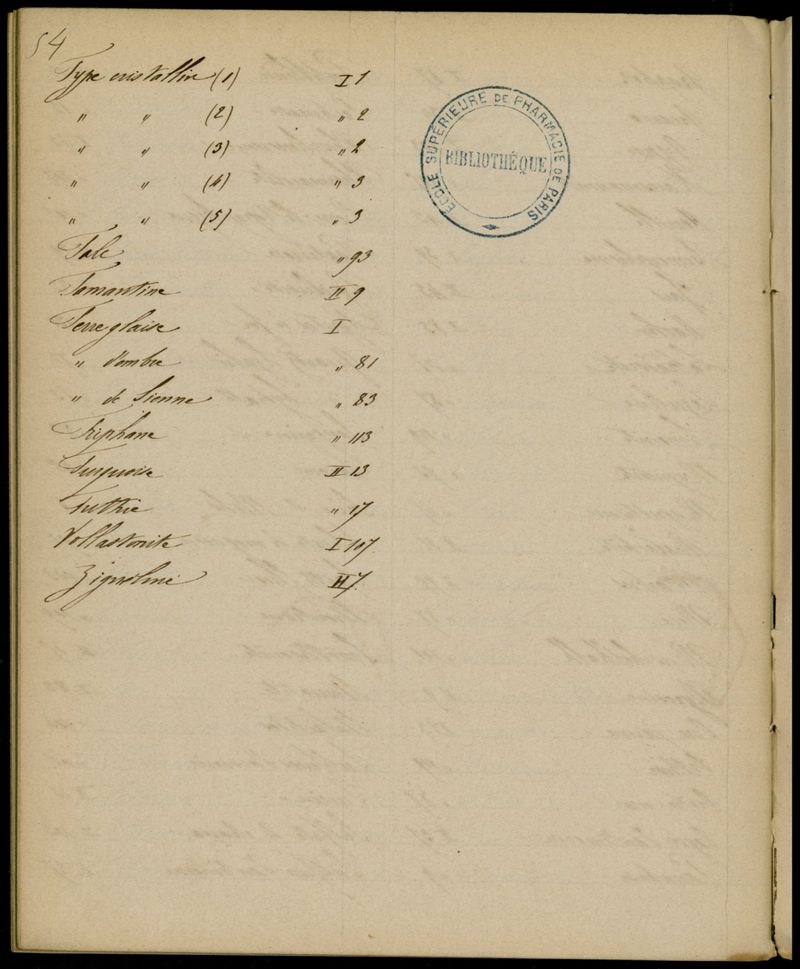 54
Type cristallin (1) I 1
" " (2) " 2
" " (3) " 2
" " (4) " 3
" " (5) " 3
Talc " 93
Tamantine II 9
Terre glaise I
" d'ombre " 81
" de Sienne " 83
Triphane " 113
Turquoise II 13
Tuthie " 17
Vollastonite I 107
Zignoline II 7
ECOLE SUPÉRIEURE DE PHARMACIE DE PARIS
BIBLIOTHÈQUE